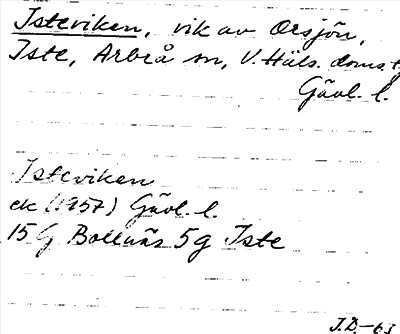 Isteviken, vik av Orsjön,
Iste, Arbrå sn, V. Häls. doms.
Gävl. l.
Isteviken
ek (1957) Gävl. l.
15 G Bollnäs 5g Iste
J.D.-63